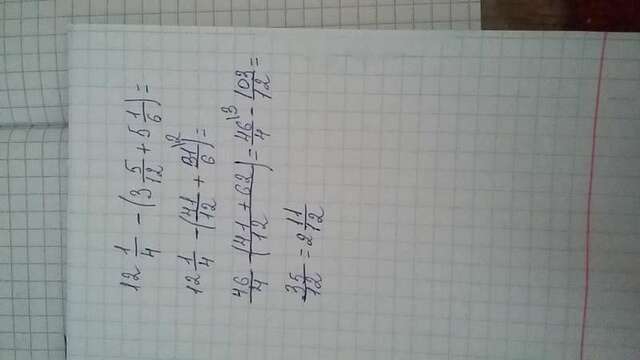 12 1/4 - (3 5/12 + 5 1/6) =
12 1/4 - (41/12 + 31/6)² =
46/4 - (41 + 62)/12 = 46/4 \3 - 103/12 =
35/12 = 2 11/12